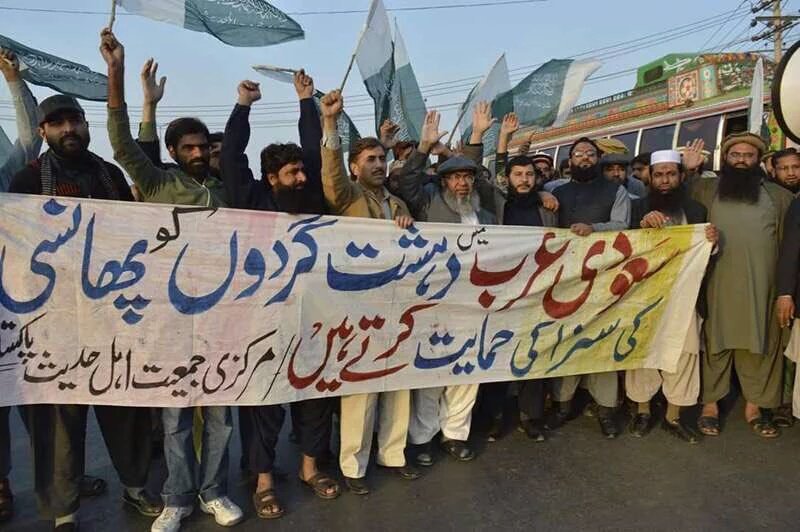 سعودی عرب میں دہشت گردوں کو پھانسی
کی سزا کی حمایت کرتے ہیں / مرکزی جمعیت اہل حدیث پاکستان